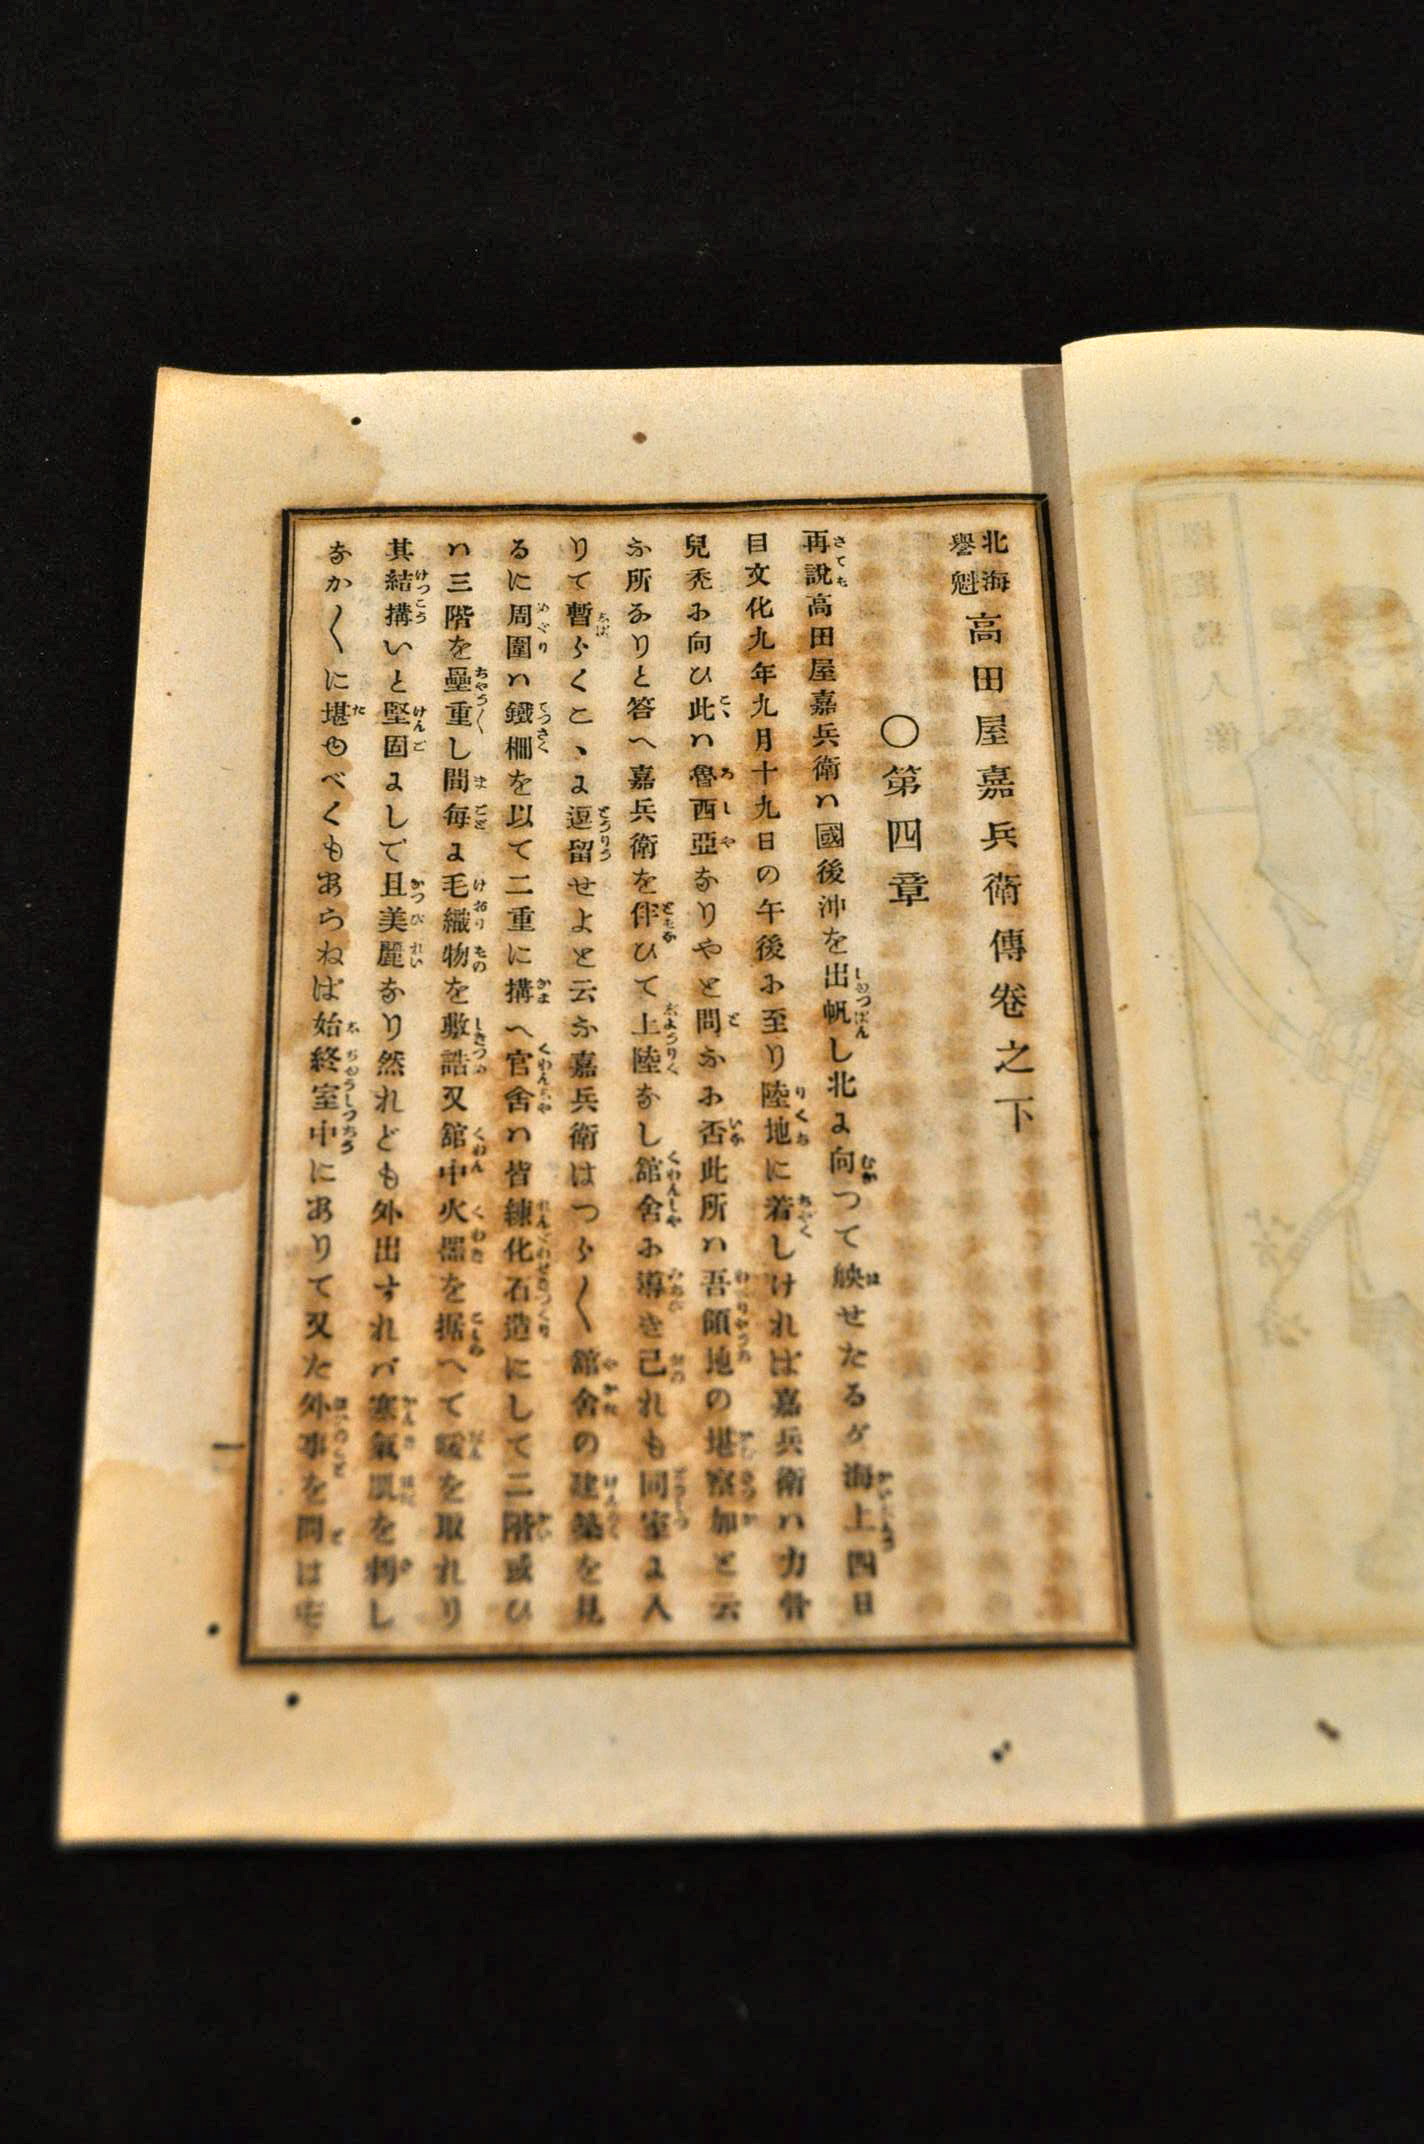 北海
譽魁
高田屋嘉兵衛傳卷之下
〇第四章
再說高田屋嘉兵衛ハ國後沖を出帆し北に向つて映せたるが海上四日
目文化九年九月十九日の午後に至り陸地に着しければ嘉兵衛ハ力骨
兒禿に向ひ此ハ魯西亞なりやと問ふに否此所ハ吾領地の堪察加と云
ふ所なりと答へ嘉兵衛を伴ひて上陸なし舘舍に導き己れも同室に入
りて暫らくこゝに逗留せよと云ふ嘉兵衛はつら〱舘舍の建築を見
るに周圍ハ鐵柵を以て二重に搆へ官舍ハ皆練化石造にして二階或ひ
ハ三階を疊重し間每に毛織物を敷詰又舘中火器を据へて暖を取れり
其結搆いと堅固にして且美麗なり然れども外出すれバ寒氣肌を刺し
なか〱に堪ゆべくもあらねば始終室中にありて又た外事を問は
一